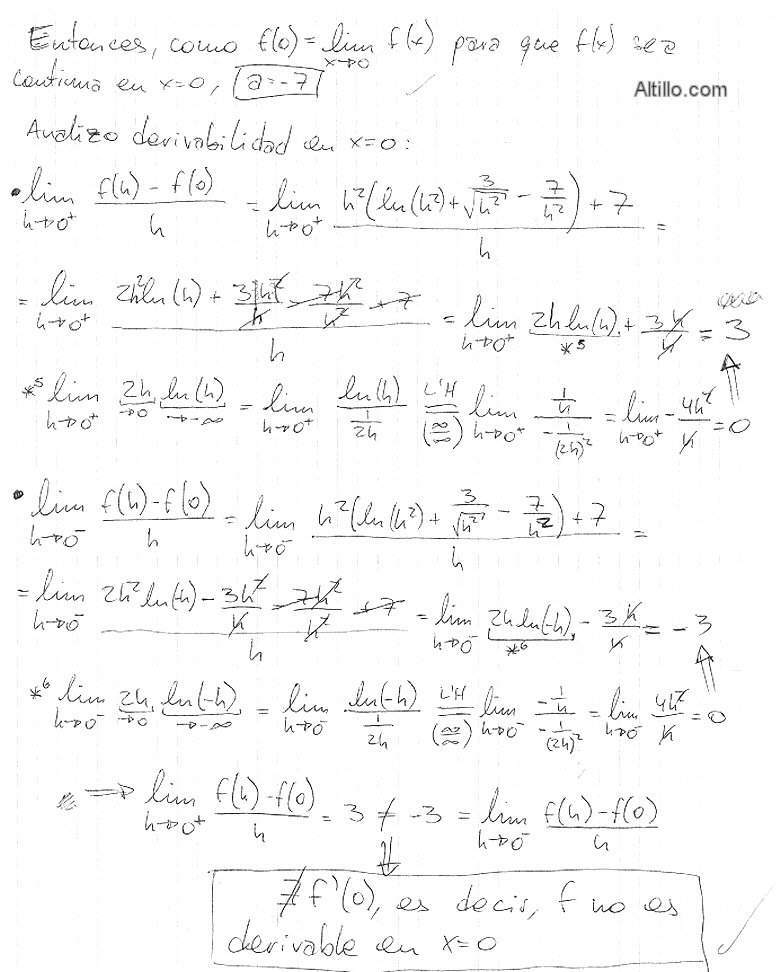 Entonces, como f(0) = lim x→0 f(x) para que f(x) sea
continua en x=0, a=-7
Altillo.com
Analizo derivabilidad en x=0:
• lim h→0⁺ (f(h) - f(0))/h = lim h→0⁺ (h²(ln(h²) + 3/√h² - 7/h²) + 7)/h =
= lim h→0⁺ (2h² ln(h) + 3h²/h - 7h²/h² + 7)/h = lim h→0⁺ 2h ln(h) *5 + 3h/h = 3
*5 lim h→0⁺ 2h →0 ln(h) →-∞ = lim h→0⁺ ln(h)/(1/2h) L'H (∞/∞) = lim h→0⁺ (1/h)/(-1/(2h)²) = lim h→0⁺ - 4h²/h = 0
• lim h→0⁻ (f(h) - f(0))/h = lim h→0⁻ (h²(ln(h²) + 3/√h² - 7/h²) + 7)/h =
= lim h→0⁻ (2h² ln(-h) - 3h²/h - 7h²/h² + 7)/h = lim h→0⁻ 2h ln(-h) *6 - 3h/h = -3
*6 lim h→0⁻ 2h →0 ln(-h) →-∞ = lim h→0⁻ ln(-h)/(1/2h) L'H (∞/∞) = lim h→0⁻ (-1/h)/(-1/(2h)²) = lim h→0⁻ 4h²/h = 0
⇒ lim h→0⁺ (f(h) - f(0))/h = 3 ≠ -3 = lim h→0⁻ (f(h) - f(0))/h
⇓
∄ f'(0), es decir, f no es
derivable en x=0